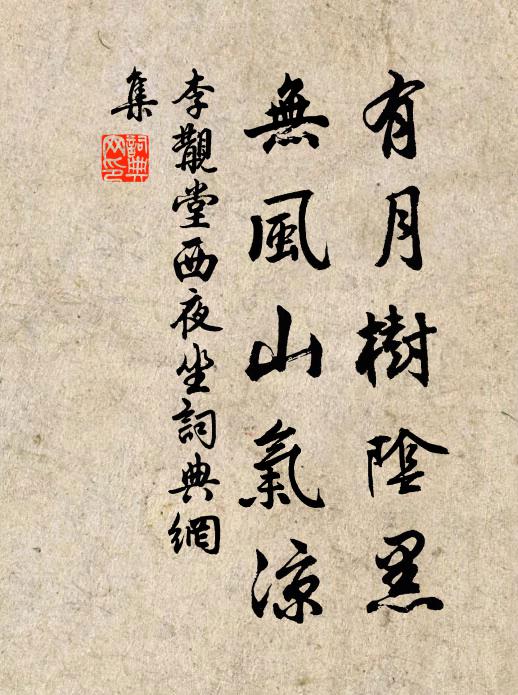 有月樹陰黑
無風山氣涼
李覯堂西夜坐詞典網
集
詞典
网印